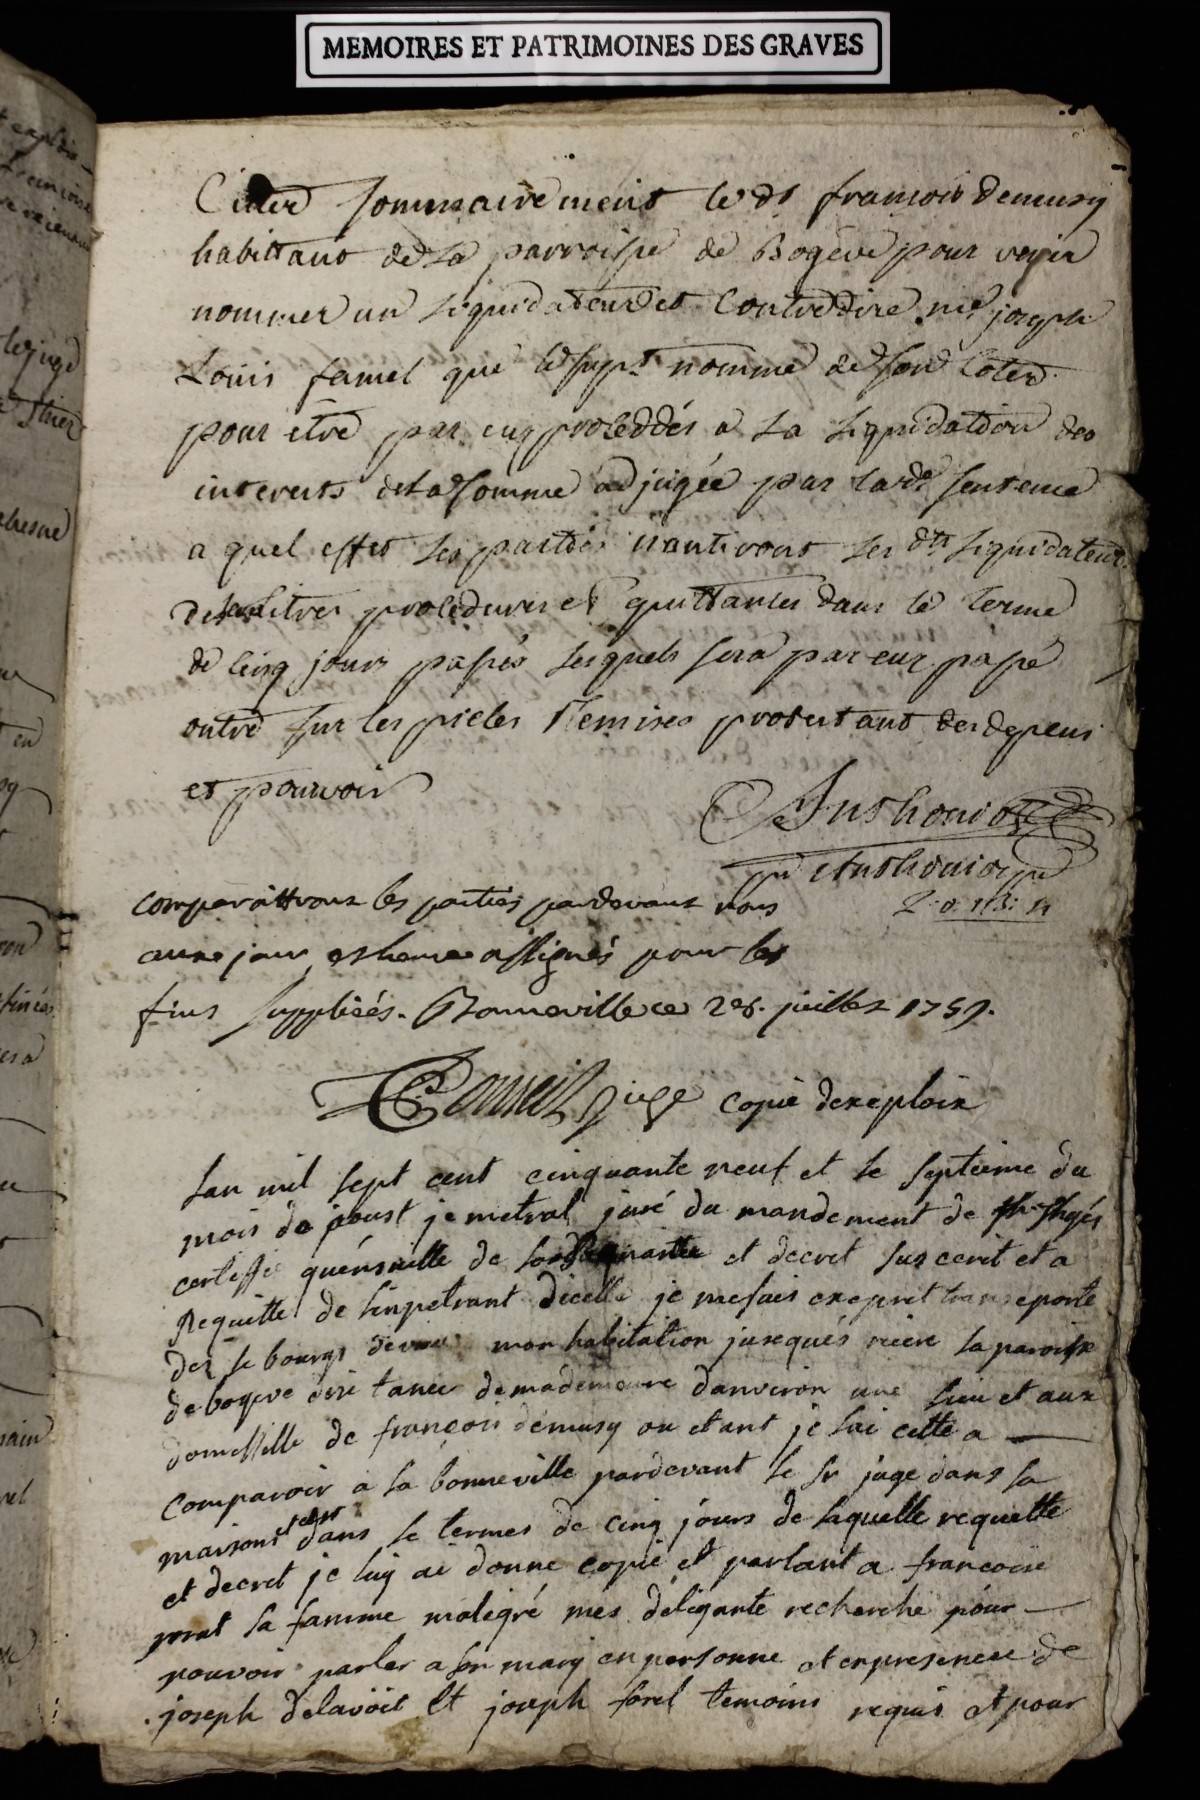 MEMOIRES ET PATRIMOINES DES GRAVES
Citter sommairement le dt francois demusy
habittant de la parroisse de Bogeve pour venir
nommer un liquidateur et Contredire me joseph
Louis famel que le supt nomme de son Coter
pour être par eux proceddés a La liquidation des
interests de la somme adjugée par lade sentence
a quel effet les parties nantiront les dts liquidateurs
des titres procedures et quittances dans le terme
de cinq jours passés lesquels sera par eux passé
outre sur les pieces Remises protestant des depens
et pourvoir
comparoittront les parties pardevant nous
aux jour et heure assignés pour les
fins suppliées. Bonneville ce 28. juillet 1759.
Conseil juge copie dexeploix
Lan mil sept cent cinquante neuf et le septieme du
mois de joust je metral juré du mandement de
certiffie quensuitte de et decret sus cerit et a
Requette de linpetrant dicelle je me suis exepret transeporte
dez le bourgs mon habitation jusqués riere la paroisse
de bogeve disetance de mademeure danviron une lieu et aux
domissille de françois demusy ou etant je lai cette a
Comparoir a la bonneville pardevant le sr juge dans sa
maisont et cest dans le termes de cinq jours de laquelle requette
et decret je luy ai donne copie et parlant a francoise
sa famme malegré mes deligante recherche pour
pouvoir parler a son mary en personne et enpresence de
joseph delavoët et joseph forel temoins requis et pour